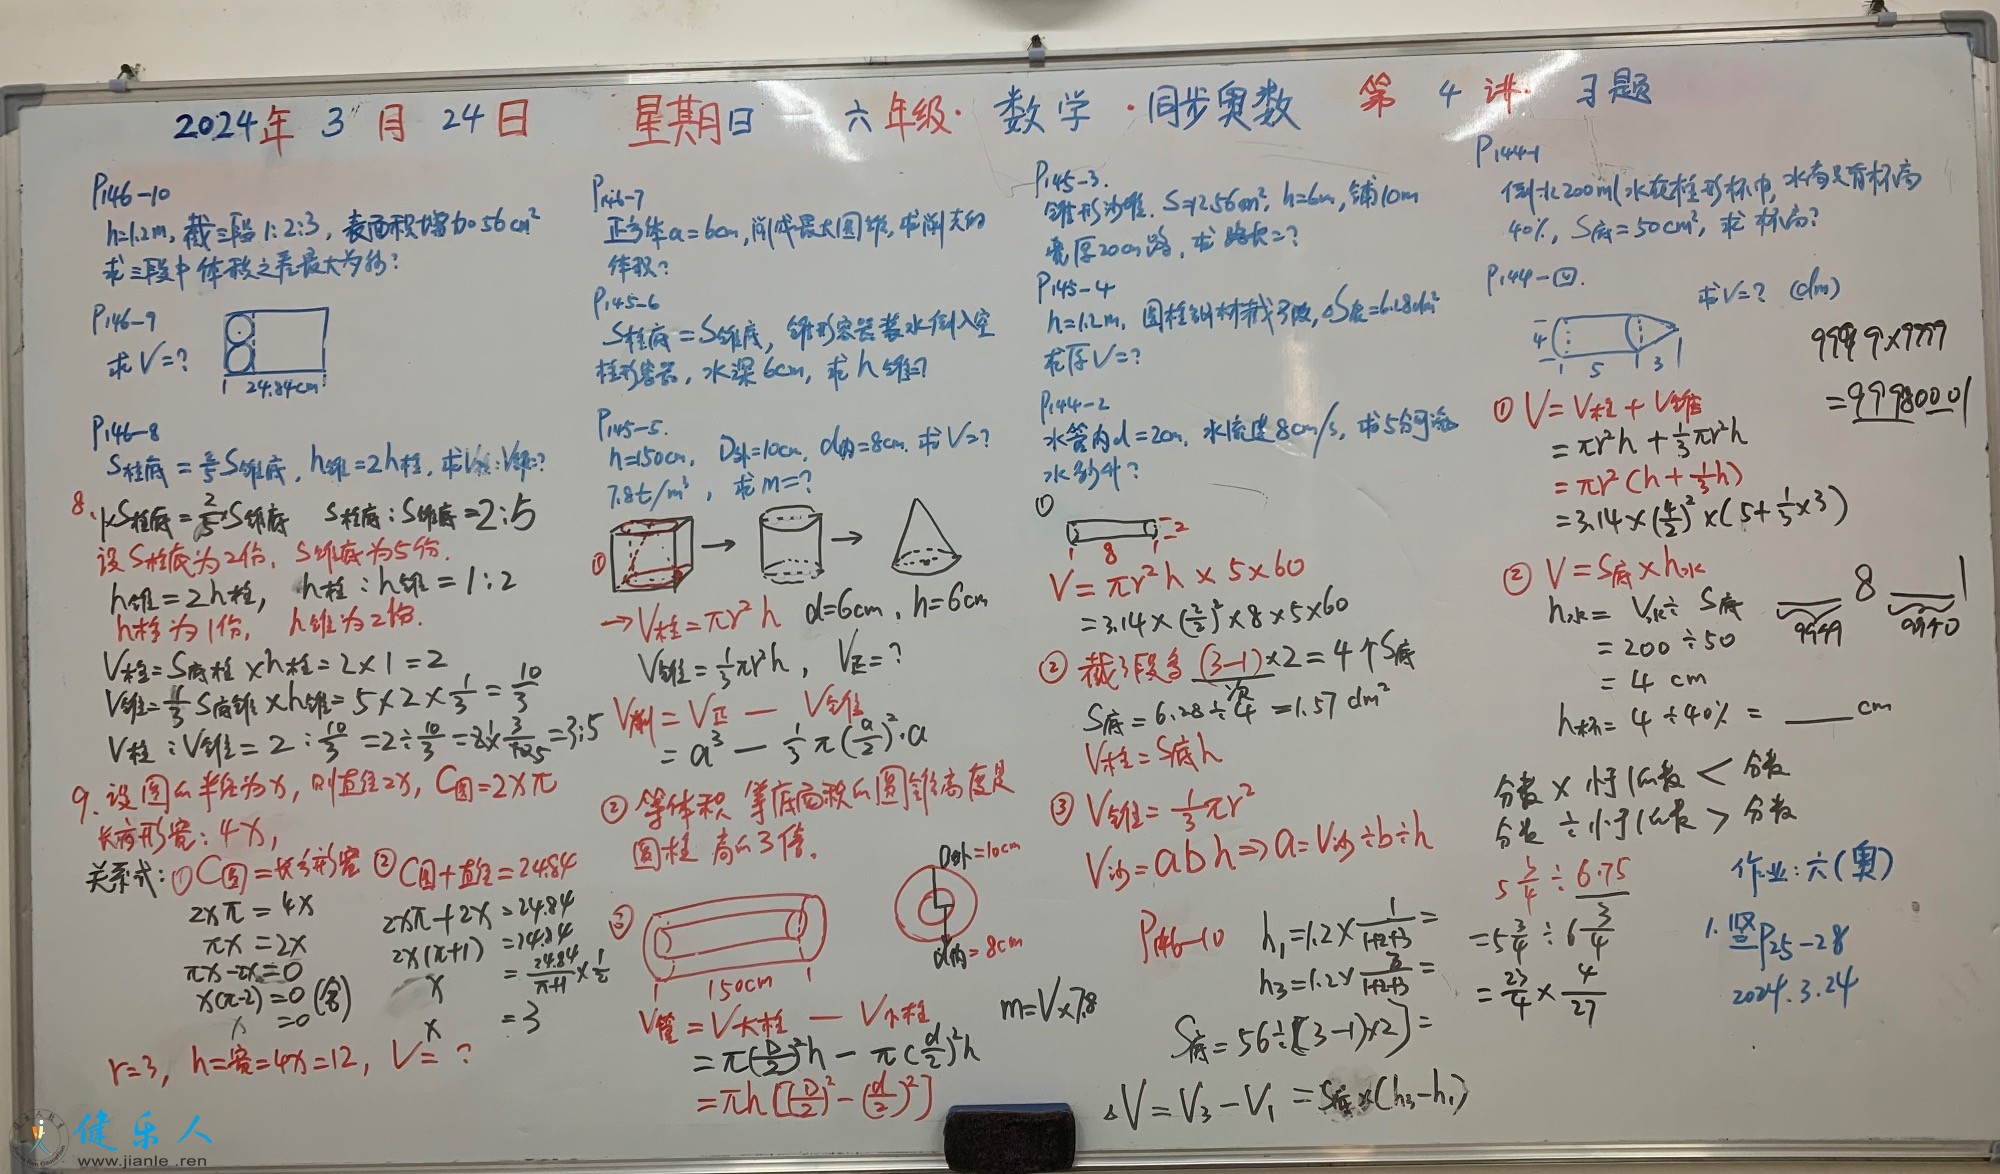 2024年 3月 24日 星期日 六年级·数学·同步奥数 第4讲·习题
P146-10
h=1.2m, 截三段1:2:3, 表面积增加56cm²
求三段中体积之差最大为多少?
P146-9
求V=?
24.84cm
P146-8
S柱底=2/5S锥底, h锥=2h柱, 求V柱:V锥=?
8.
S柱底=2/5S锥底 S柱底:S锥底=2:5
设S柱底为2份, S锥底为5份.
h锥=2h柱, h柱:h锥=1:2
h柱为1份, h锥为2份.
V柱=S底柱×h柱=2×1=2
V锥=1/3S底锥×h锥=5×2×1/3=10/3
V柱:V锥=2:10/3=2÷10/3=2×3/10=3:5
9. 设圆的半径为x, 则直径2x, C圆=2xπ
长方形宽:4x,
关系式:①C圆=长方形宽 ②C圆+直径=24.84
2xπ=4x
πx=2x
πx-2x=0
x(π-2)=0(舍)
x=0
2xπ+2x=24.84
2x(π+1)=24.84
x=24.84/π+1×1/2
x=3
r=3, h=宽=4x=12, V=?
P146-7
正方体a=6cm, 削成最大圆锥, 求削去的
体积?
P145-6
S柱底=S锥底, 锥形容器装水倒入空
柱形容器, 水深6cm, 求h锥=?
P145-5.
h=150cm, D外=10cm, d内=8cm. 求V=?
7.8t/m³, 求m=?
①
→V柱=πr²h d=6cm, h=6cm
V锥=1/3πr²h, V正=?
V削=V正-V锥
=a³-1/3π(a/2)²·a
②等体积 等底面积的圆锥高度是
圆柱高的3倍.
③
150cm
D外=10cm
d内=8cm
V管=V大柱-V小柱
=π(D/2)²h-π(d/2)²h
=πh[(D/2)²-(d/2)²]
m=V×7.8
P145-3.
锥形沙堆. S=12.56m², h=6m, 铺10m
宽厚20cm路, 求路长=?
P145-4
h=1.2m, 圆柱钢材截3段, S表=6.28dm²
求原V=?
P144-2
水管内d=2cm, 水流速8cm/s, 求5分可流
水多少?
①
2
8
V=πr²h×5×60
=3.14×(2/2)²×8×5×60
②截3段多(3-1)×2=4个S底
次
S底=6.28÷4=1.57dm²
V柱=S底h
③V锥=1/3πr²
V沙=abh⇒a=V沙÷b÷h
P146-10 h₁=1.2×1/1+2+3=
h₃=1.2×3/1+2+3=
S底=56÷[(3-1)×2]=
△V=V₃-V₁=S底×(h₃-h₁)
P144-1
倒水200ml水在柱形杯中, 水高只有杯高
40%, S底=50cm², 求杯高?
P144-四.
求V=? (dm)
4
5 3
①V=V柱+V锥
=πr²h+1/3πr²h
=πr²(h+1/3h)
=3.14×(4/2)²×(5+1/3×3)
9999×9999
=99980001
②V=S底×h水
h水=V水÷S底
=200÷50
=4 cm
h杯=4÷40%=____cm
8 1
分数×小于1的数<分数
分数÷小于1的数>分数
5 3/4÷6.75
=5 3/4÷6 3/4
=23/4×4/27
作业:六(奥)
1.竖P25-28
2024.3.24
健乐人
www.jianle.ren